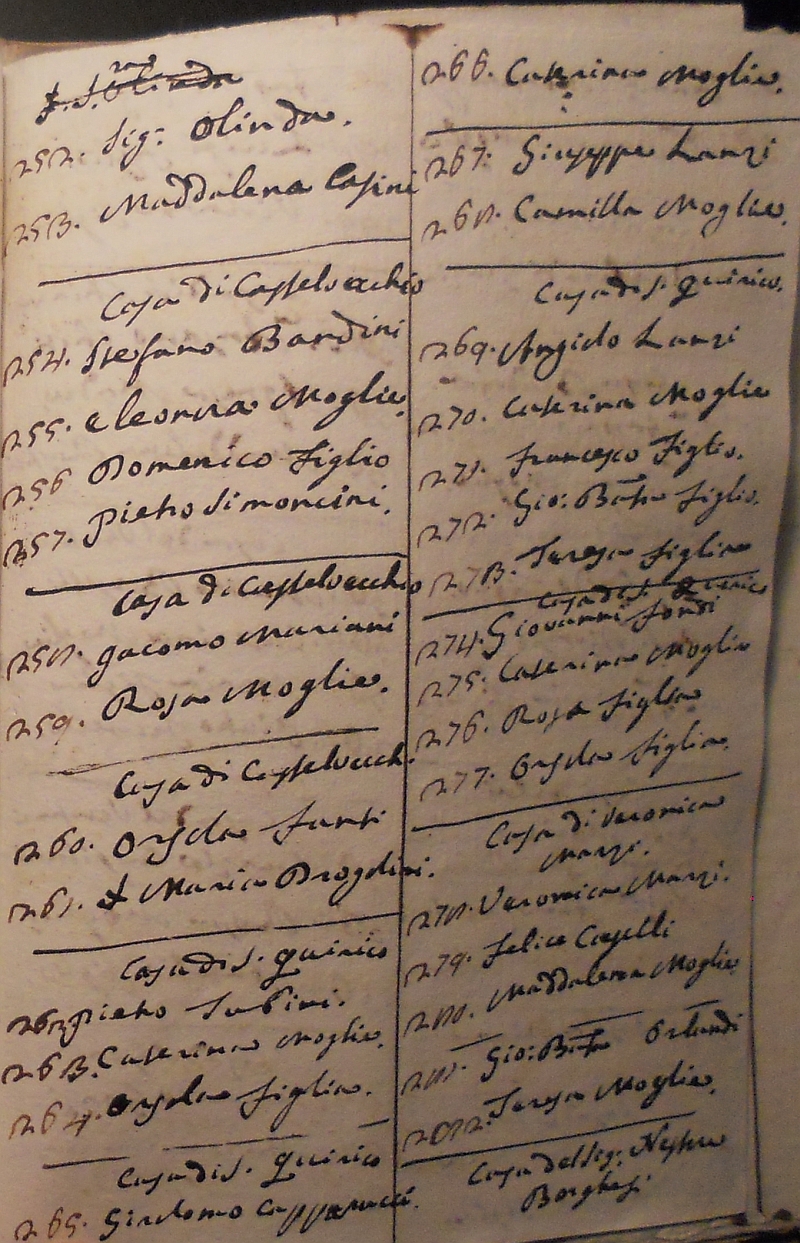 252. Sig: Olinda.
253. Maddalena Casini
Casa di Casselvecchio
254. Stefano Bardini
255. eleonora Moglie.
256 Domenico figlio
257. Pietro Simoncini.
Casa di Casselvecchio
258. giacomo Mariani
259. Rosa Moglie.
Casa di Casselvecch.
260. Orsola Santi
261. Maria
Casa di S. Quirico
262 Pietro Sabini.
263. Caterina Moglie.
264. Orsola figlia.
Casa di S. Quirico
265. Girolomo
266. Caterina Moglie.
267. Giuseppe Lanzi
268. Camilla Moglie.
Casa di S. Quirico.
269. Angielo Lanzi
270. Caterina Moglie
271. francesco figlio.
272. Gio: Batta figlio.
273. Teresa figlia
Casa di S. Quirico
274. Giovanni fondi
275. Caterina Moglie
276. Rosa figlia
277. Orsola figlia.
Casa di Veronica
Marzi.
278. Veronica Marzi.
279. felice Caselli
280. Maddalena Moglie
281. Gio: Batta Orlandi
282. Teresa Moglie.
Casa del Sig:
Borghesi